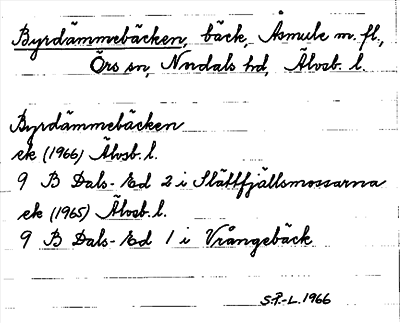 Byrdämmebäcken, bäck, Åsmule m. fl.,
Örs sn, Nndals hd, Älvsb. l.
Byrdämmebäcken
ek (1966) Älvsb. l.
9 B Dals-Ed 2 i Slättfjällsmossarna
ek (1965) Älvsb. l.
9 B Dals-Ed 1 i Vrångebäck
S.P.-L. 1966